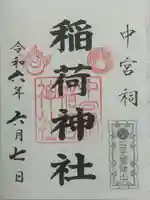 中宮祠
稲荷神社
令和六年六月七日